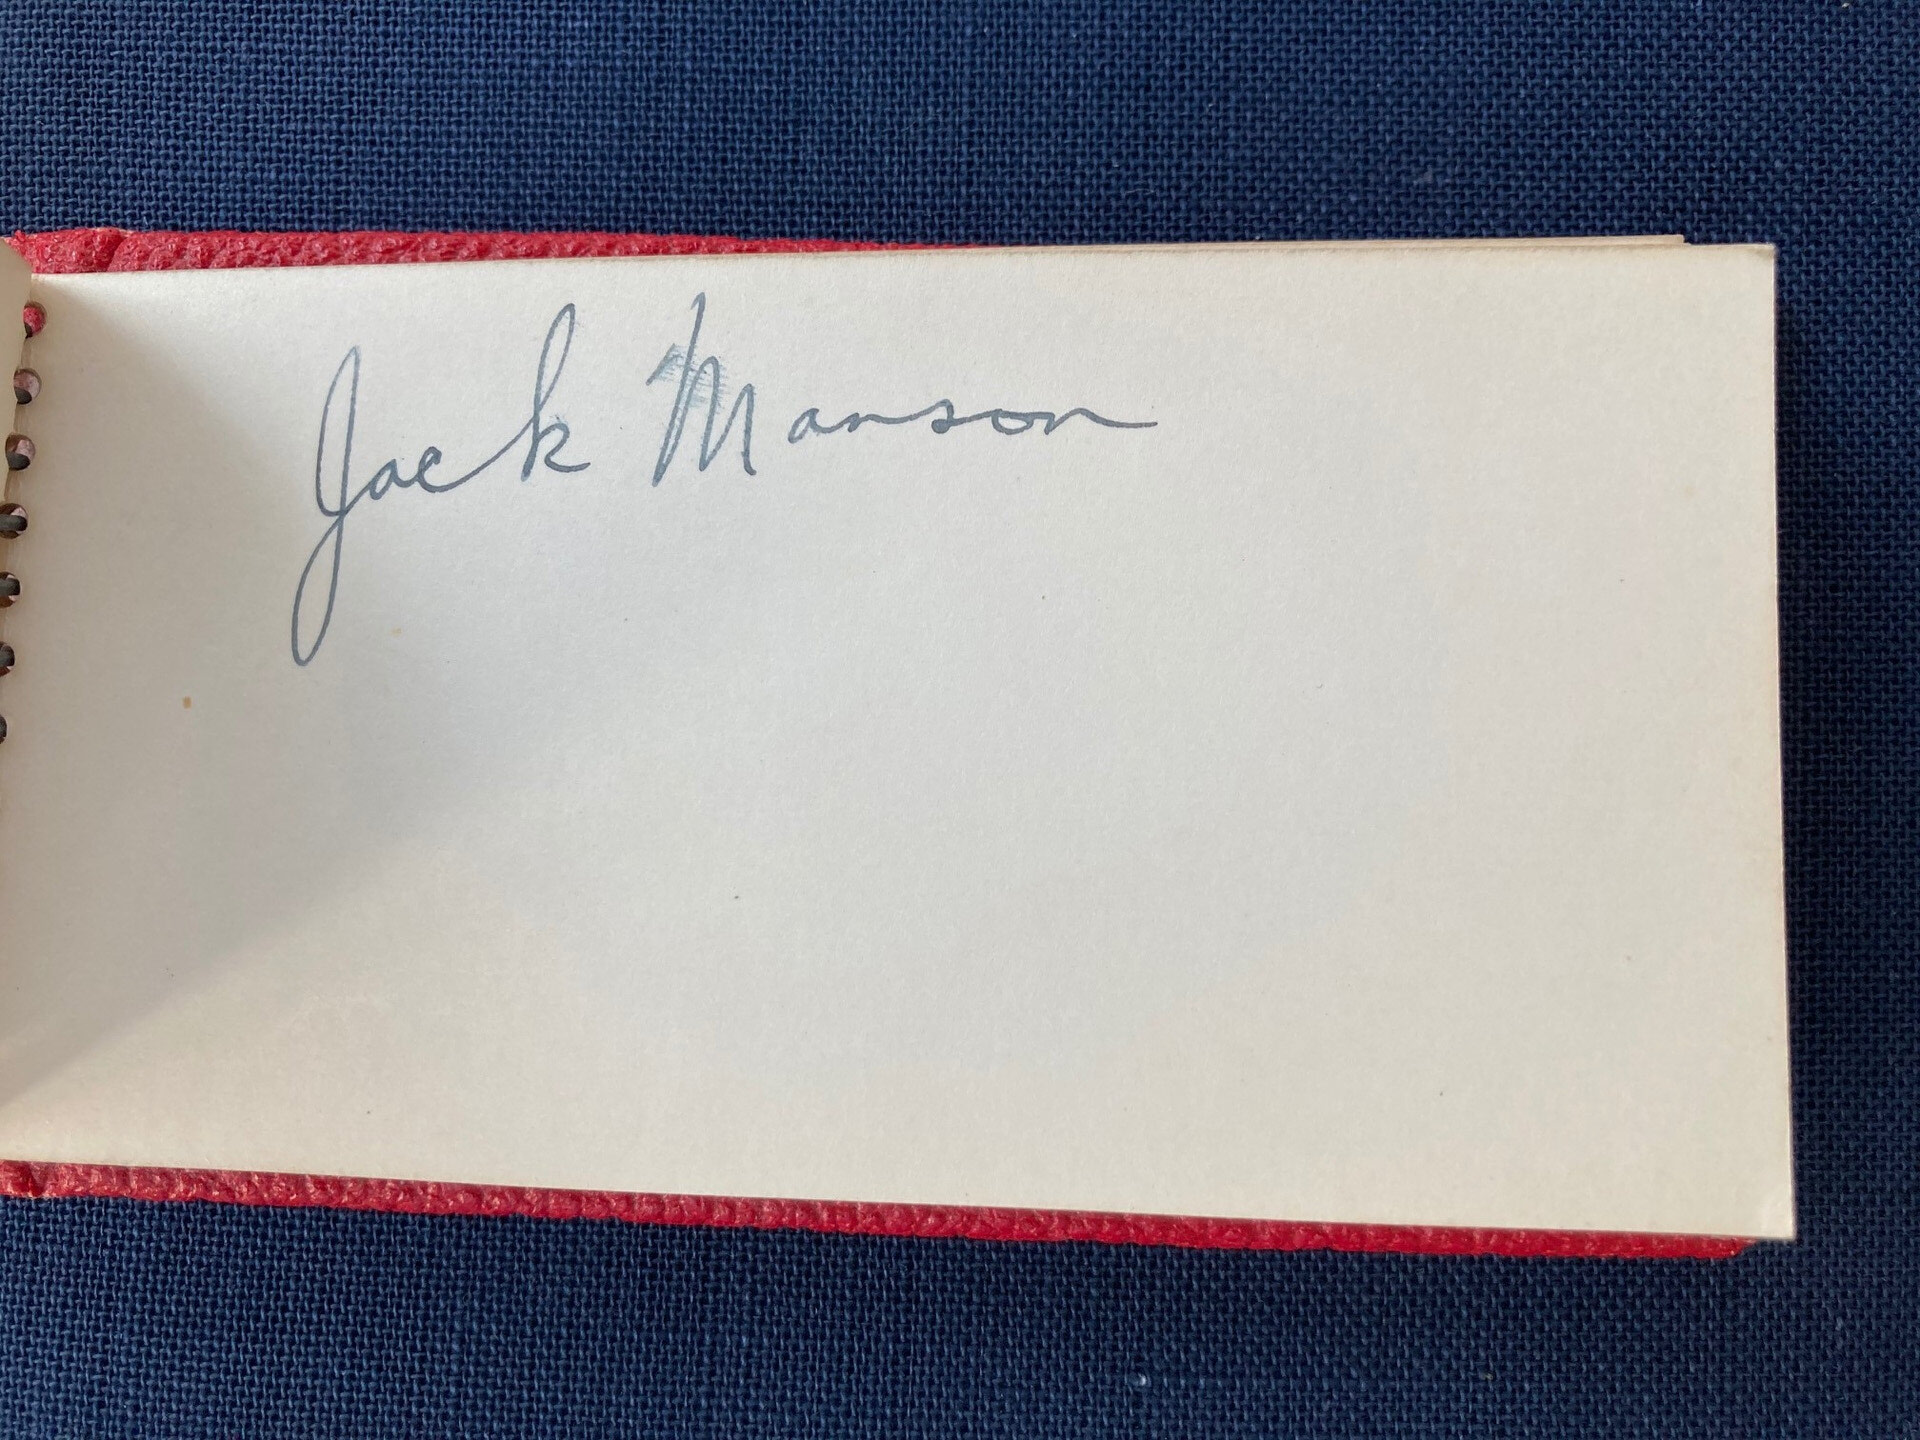 Jack Manson